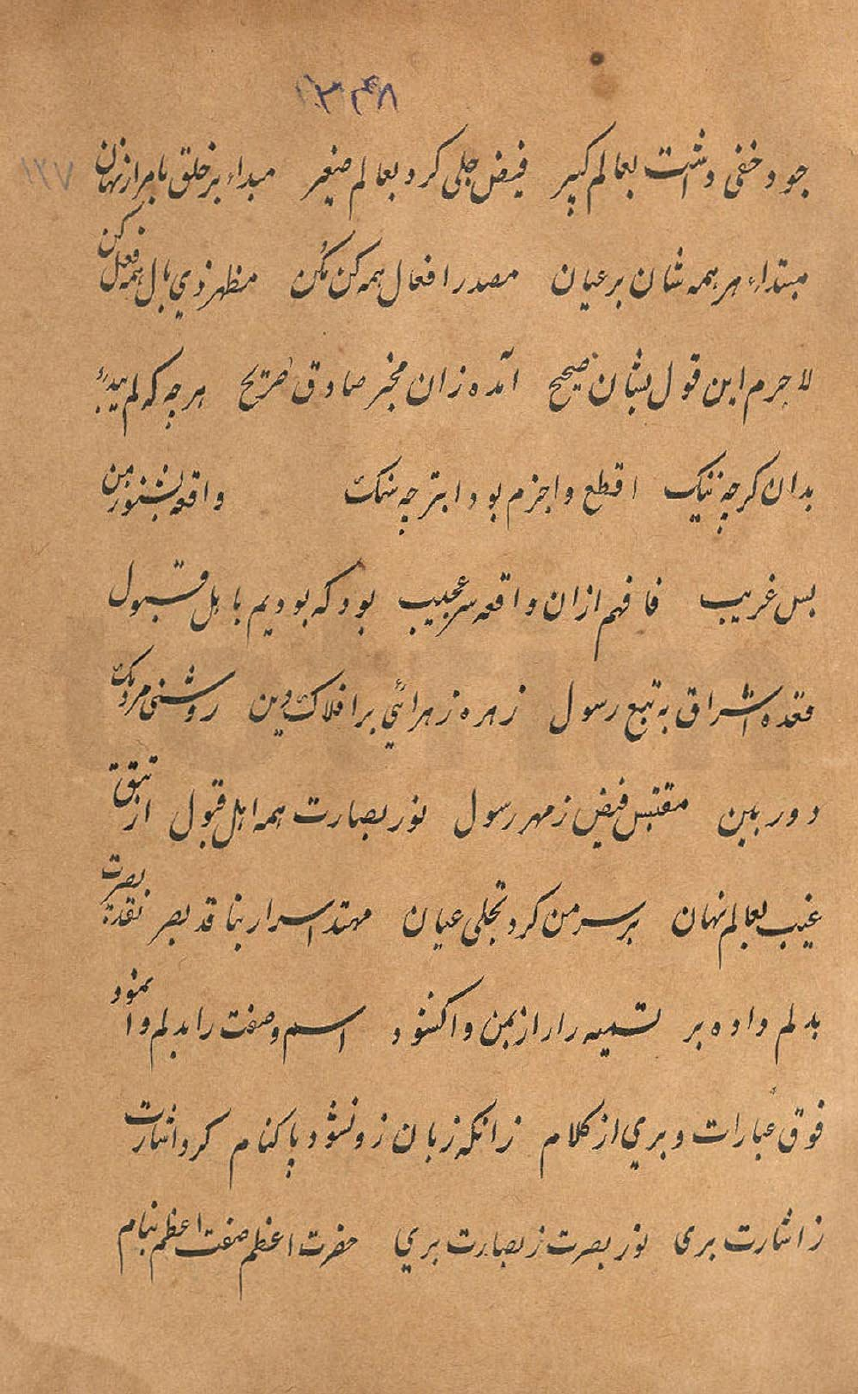 ۳۴۸
۱۲۷
جود خفی داشت بعالم کبیر فیض جلی کرد بعالم صغیر مبداء هر خلق بامر از نهان
مبتداء هر همه شان بر عیان مصدر افعال همه کن مکن مظهر ذی بال همه فعل کن
لاجرم این قول بشان صحیح آمده زان مخبر صادق صریح هر چه که لم یبدء
بدان کرچه نیک اقطع واجزم بود ابتر چه سنک واقعه بشنو ز من
بس غریب فافهم ازان واقعه سر عجیب بود که بودیم باهل قبول
قعده اشراق به تبع رسول زهره زهرائی بر افلاک دین روشنی مردمک
دور بین مقتبس فیض ز مهر رسول نور بصارت همه اهل قبول از تتق
غیب بعالم نهان بر سر من کرد تجلی عیان مهتد اسرار بنا قد بصر نقده بصرت
بدلم داده بر تسمیه را راز بمن واکشود اسم وصفت را بدلم وا نمود
فوق عبارات وبری از کلام زانکه زبان زو نشود با کنام کرد اشارت
ز اشارت بری نور بصرت ز بصارت بری حضرت اعظم صفت اعظم بنام